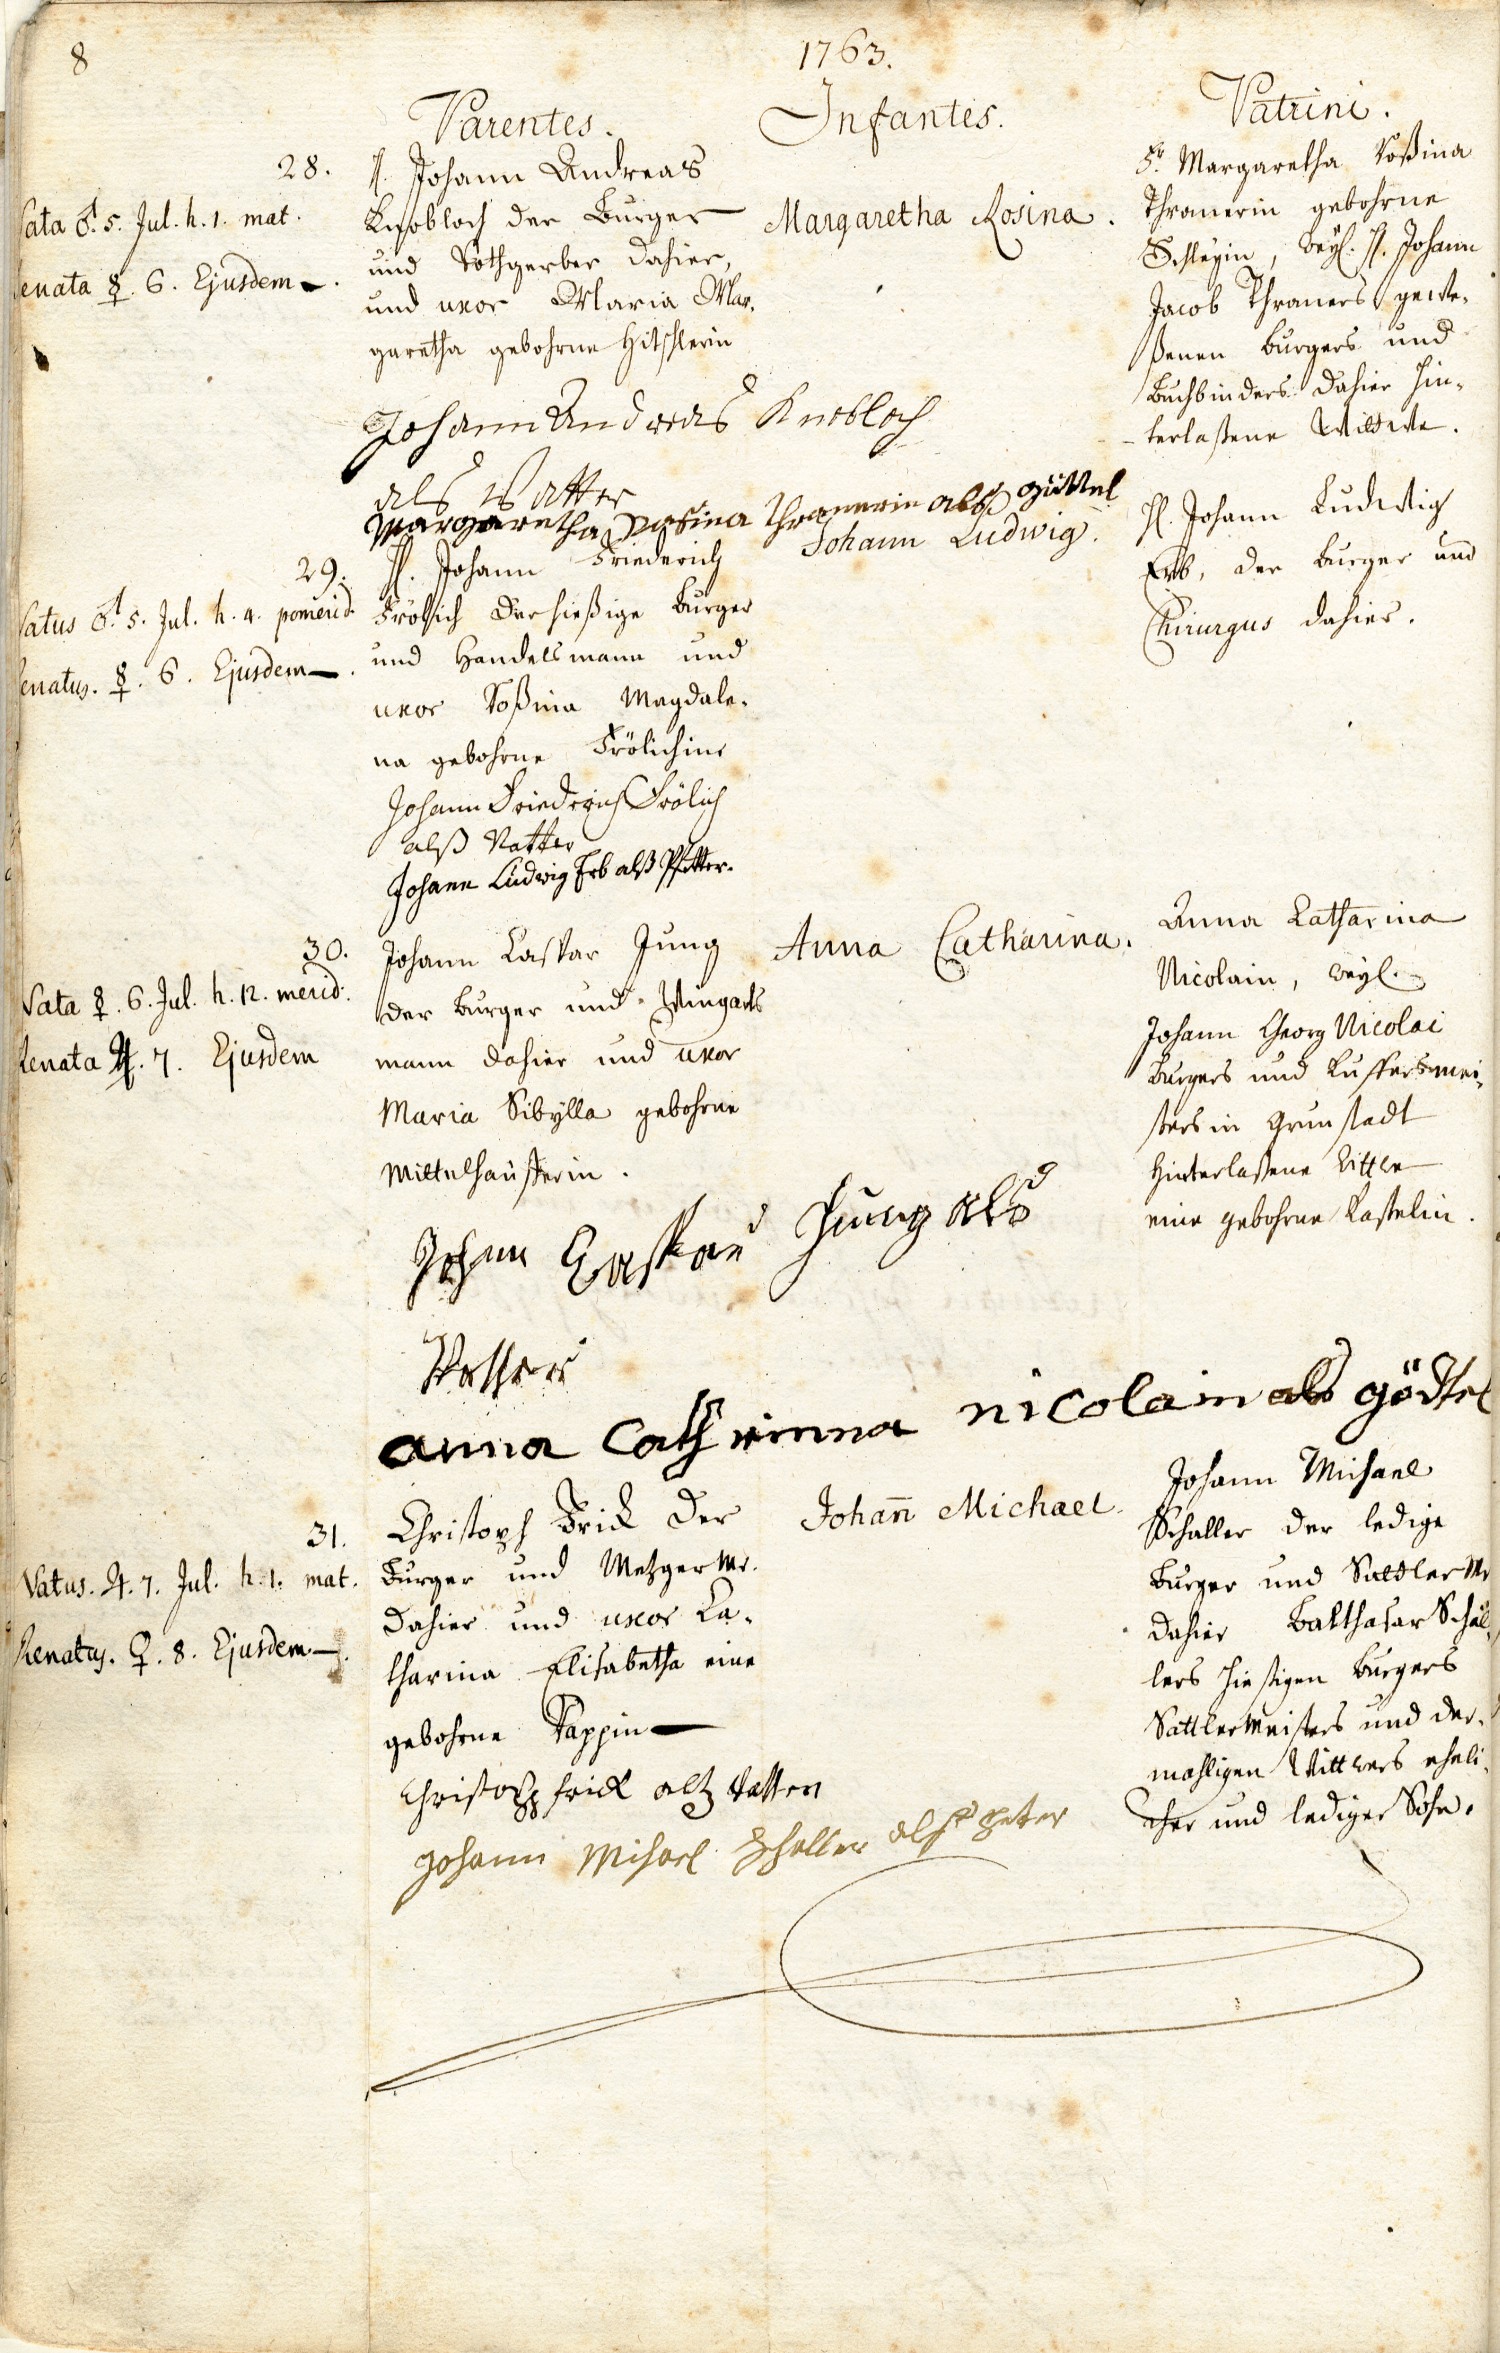 8
1763.
Parentes.
Infantes.
Patrini.
28.
Nata ♂. 5. Jul. h. 1. mat.
Renata ☿. 6. Ejusdem.
H. Johann Andreas
Knobloch der Burger
und Rothgerber dahier,
und uxor Maria Mar-
garetha gebohrne Hitschlerin
Margaretha Rosina.
Fr. Margaretha Roßina
Thranerin gebohrne
Schleyin, weyl. H. Johann
Jacob Thraners gewe-
ßenen Burgers und
Buchbinders dahier hin-
terlaßene Wittwe.
Johann Andreas Knobloch
als Vatter
Margaretha Rosina Thranerin alß göttel
29.
Natus ♂. 5. Jul. h. 4. pomerid.
Renatus. ☿. 6. Ejusdem.
H. Johann Friederich
Frölich der hießige Burger
und Handelsmann und
uxor Roßina Magdale-
na gebohrne Frölichin
Johann Ludwig.
H. Johann Ludwig
Erb, der Burger und
Chirurgus dahier.
Johann Friederich Frölich
alß Vatter
Johann Ludwig Erb alß Pfetter.
30.
Nata ☿. 6. Jul. h. 12. merid.
Renata ♃. 7. Ejusdem
Johann Caspar Jung
der Burger und Wingarts
mann dahier und uxor
Maria Sibylla gebohrne
Mittelhaußerin.
Anna Catharina.
Anna Catharina
Nicolain, weyl.
Johann Georg Nicolai
Burgers und Kuffersmei-
sters in Grunstadt
hinterlaßene Wittwe
eine gebohrne Kastelin.
Johann Caspar Jung als
Vatter
anna Catherinna nicolain als gödtel
31.
Natus. ♃. 7. Jul. h. 1. mat.
Renatus. ♀. 8. Ejusdem.
Christoph Frick der
Burger und Metzger Mr.
dahier und uxor Ca-
tharina Elisabetha eine
gebohrne Rappin
Johan̄ Michael.
Johann Michael
Schaller der ledige
Burger und Sattler Mr
dahier Balthasar Schal-
lers hießigen Burgers
Sattlermeisters und der-
mahligen Wittwers eheli-
cher und lediger Sohn.
Christoph frick altz vatter
Johann Michael Schaller alß peter